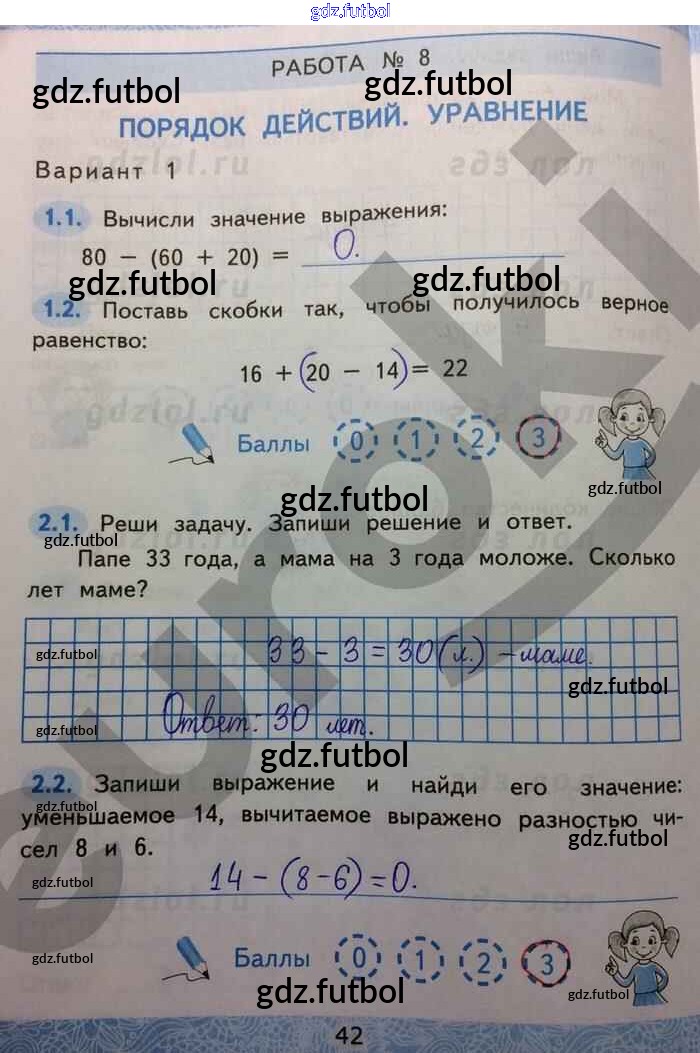 gdz.futbol
РАБОТА № 8
gdz.futbol gdz.futbol
ПОРЯДОК ДЕЙСТВИЙ. УРАВНЕНИЕ
Вариант 1
1.1. Вычисли значение выражения:
80 − (60 + 20) = 0.
gdz.futbol gdz.futbol
1.2. Поставь скобки так, чтобы получилось верное
равенство:
16 + (20 − 14) = 22
Баллы 0 1 2 3
gdz.futbol
gdz.futbol
2.1. Реши задачу. Запиши решение и ответ.
gdz.futbol
Папе 33 года, а мама на 3 года моложе. Сколько
лет маме?
gdz.futbol 33 − 3 = 30 (л.) − маме.
gdz.futbol
gdz.futbol Ответ: 30 лет.
gdz.futbol
2.2. Запиши выражение и найди его значение:
gdz.futbol
уменьшаемое 14, вычитаемое выражено разностью чи-
gdz.futbol
сел 8 и 6.
gdz.futbol 14 − (8 − 6) = 0.
gdz.futbol
Баллы 0 1 2 3
gdz.futbol gdz.futbol
42
euroki